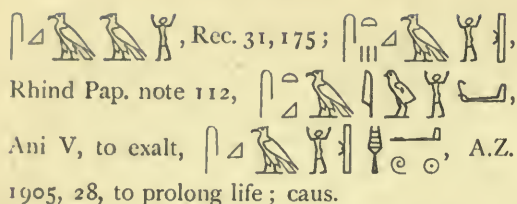 𓋴𓈎𓄿𓄿𓀠, Rec. 31, 175; 𓋴𓏏𓏥𓈎𓄿𓀠,
Rhind Pap. note 112, 𓋴𓏏𓈎𓄿𓇋𓅱𓀠𓂡,
Ani V, to exalt, 𓋴𓈎𓄿𓀠, A.Z.
1905, 28, to prolong life; caus.